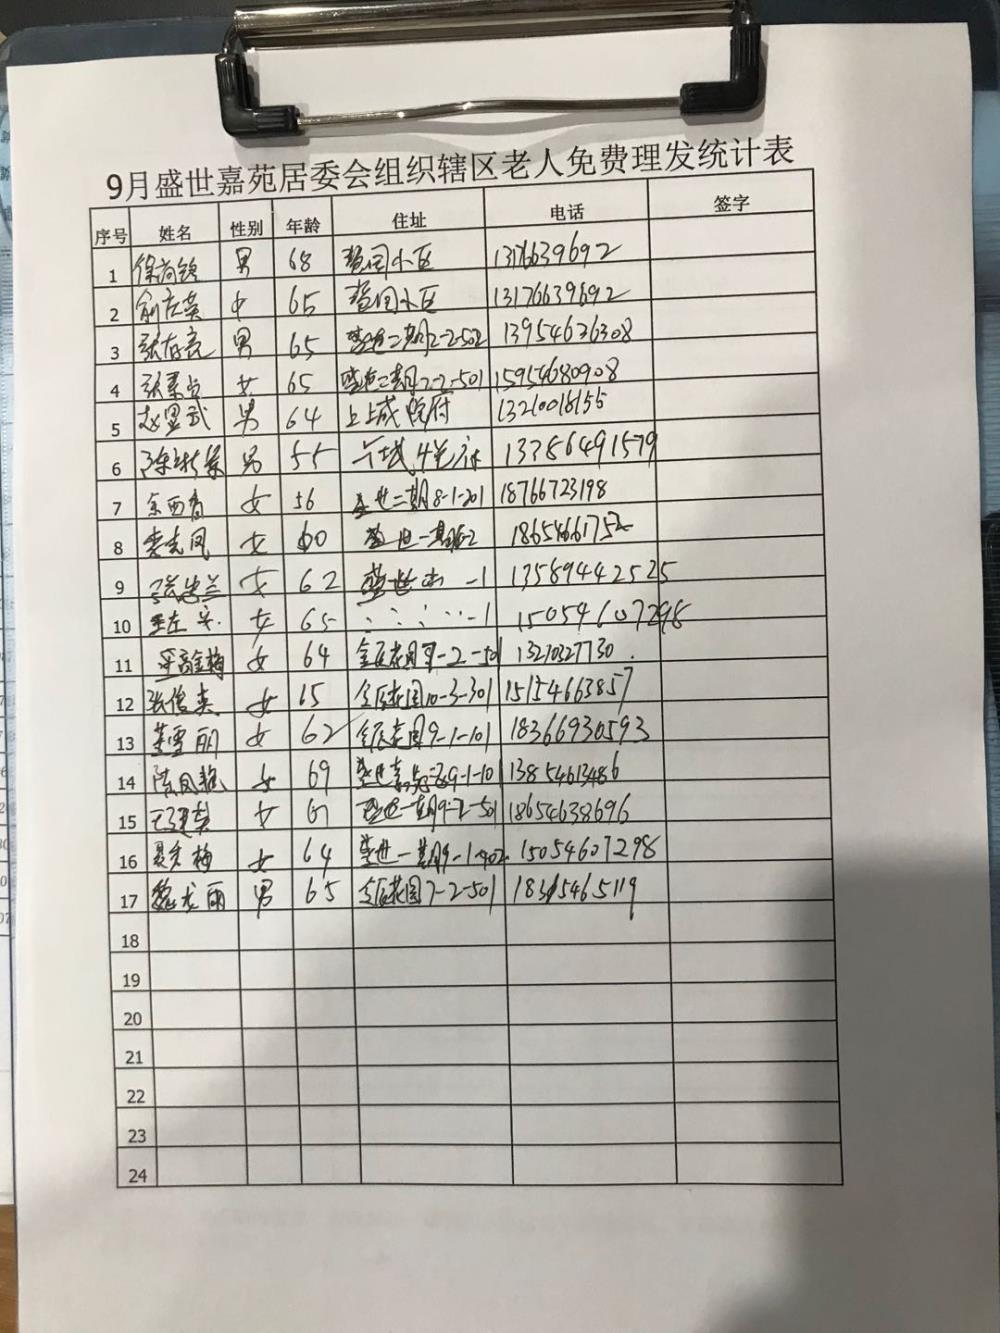 9月盛世嘉苑居委会组织辖区老人免费理发统计表
序号 姓名 性别 年龄 住址 电话 签字
1 徐尚钦 男 68 小区 13176639692
2 俞左英 女 65 小区 13176639692
3 张存亮 男 65 盛世二期2-2-502 13954636308
4 张 女 65 盛世二期2-2-501 15954680908
5 赵显武 男 64 上城院府 13210018155
6 男 55 13386491579
7 东西香 女 56 盛世二期8-1-201 18766723198
8 女 60 盛世一期 18654661752
9 张忠兰 女 62 盛世 -1 13589442525
10 女 65 -1 15054607298
11 梅 女 64 金辰花园 -2-501 13210327730
12 张俊英 女 65 金辰花园10-3-301 15154663857
13 董雪丽 女 62 金辰花园9-1-101 18366930593
14 陈凤 女 69 盛世嘉苑 9-1-101 13854613486
15 王建 女 67 盛世一期9-2-501 18654638696
16 聂 梅 女 64 盛世一期9-1-402 15054607298
17 魏龙丽 男 65 金辰花园7-2-501 18315465119
18
19
20
21
22
23
24